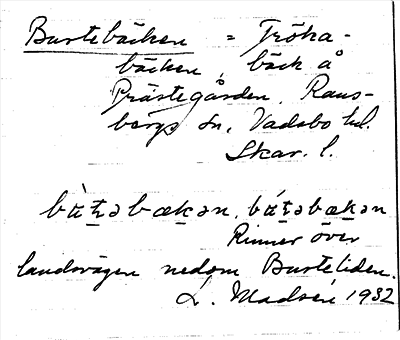 Bustebäcken = Tröka-
bäcken, bäck å
Prästegården. Rans-
bergs sn, Vadsbo hd.
Skar. l.
Rinner över
landsvägen nedom Busteliden.
L. Madsén 1932